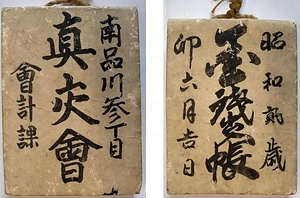 南品川参丁目
真會
會計課
昭和貳歳
金銭帳
卯六月吉日